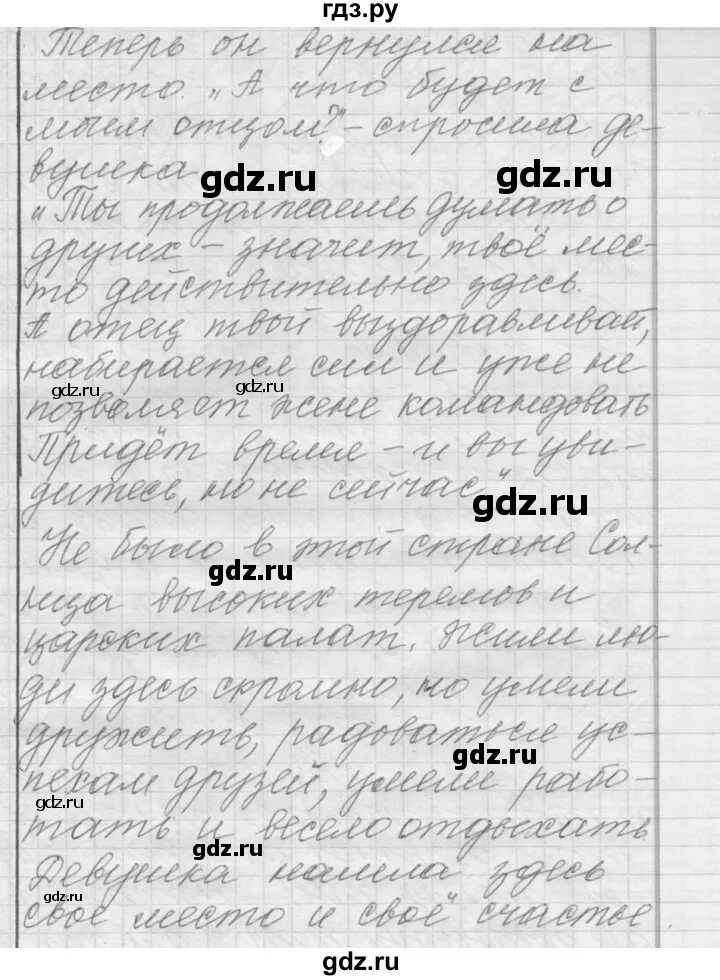 гдз.ру
Теперь он вернулся на
место. "А что будет с
моим отцом?" - спросила де-
вушка
gdz.ru gdz.ru
"Ты продолжаешь думать о
других - значит, твоё мес-
то действительно здесь.
А отец твой выздоравливает,
набирается сил и уже не
gdz.ru gdz.ru
позволяет жене командовать
Придёт время - и вы уви-
дитесь, но не сейчас"
gdz.ru
Не было в этой стране Сол-
gdz.ru
нца высоких теремов и
царских палат. Жили лю-
ди здесь скромно, но умели
дружить, радоваться ус-
gdz.ru
пехам друзей, умели рабо-
gdz.ru
тать и весело отдыхать
gdz.ru
Девушка нашла здесь
своё место и своё счастье.
gdz.ru